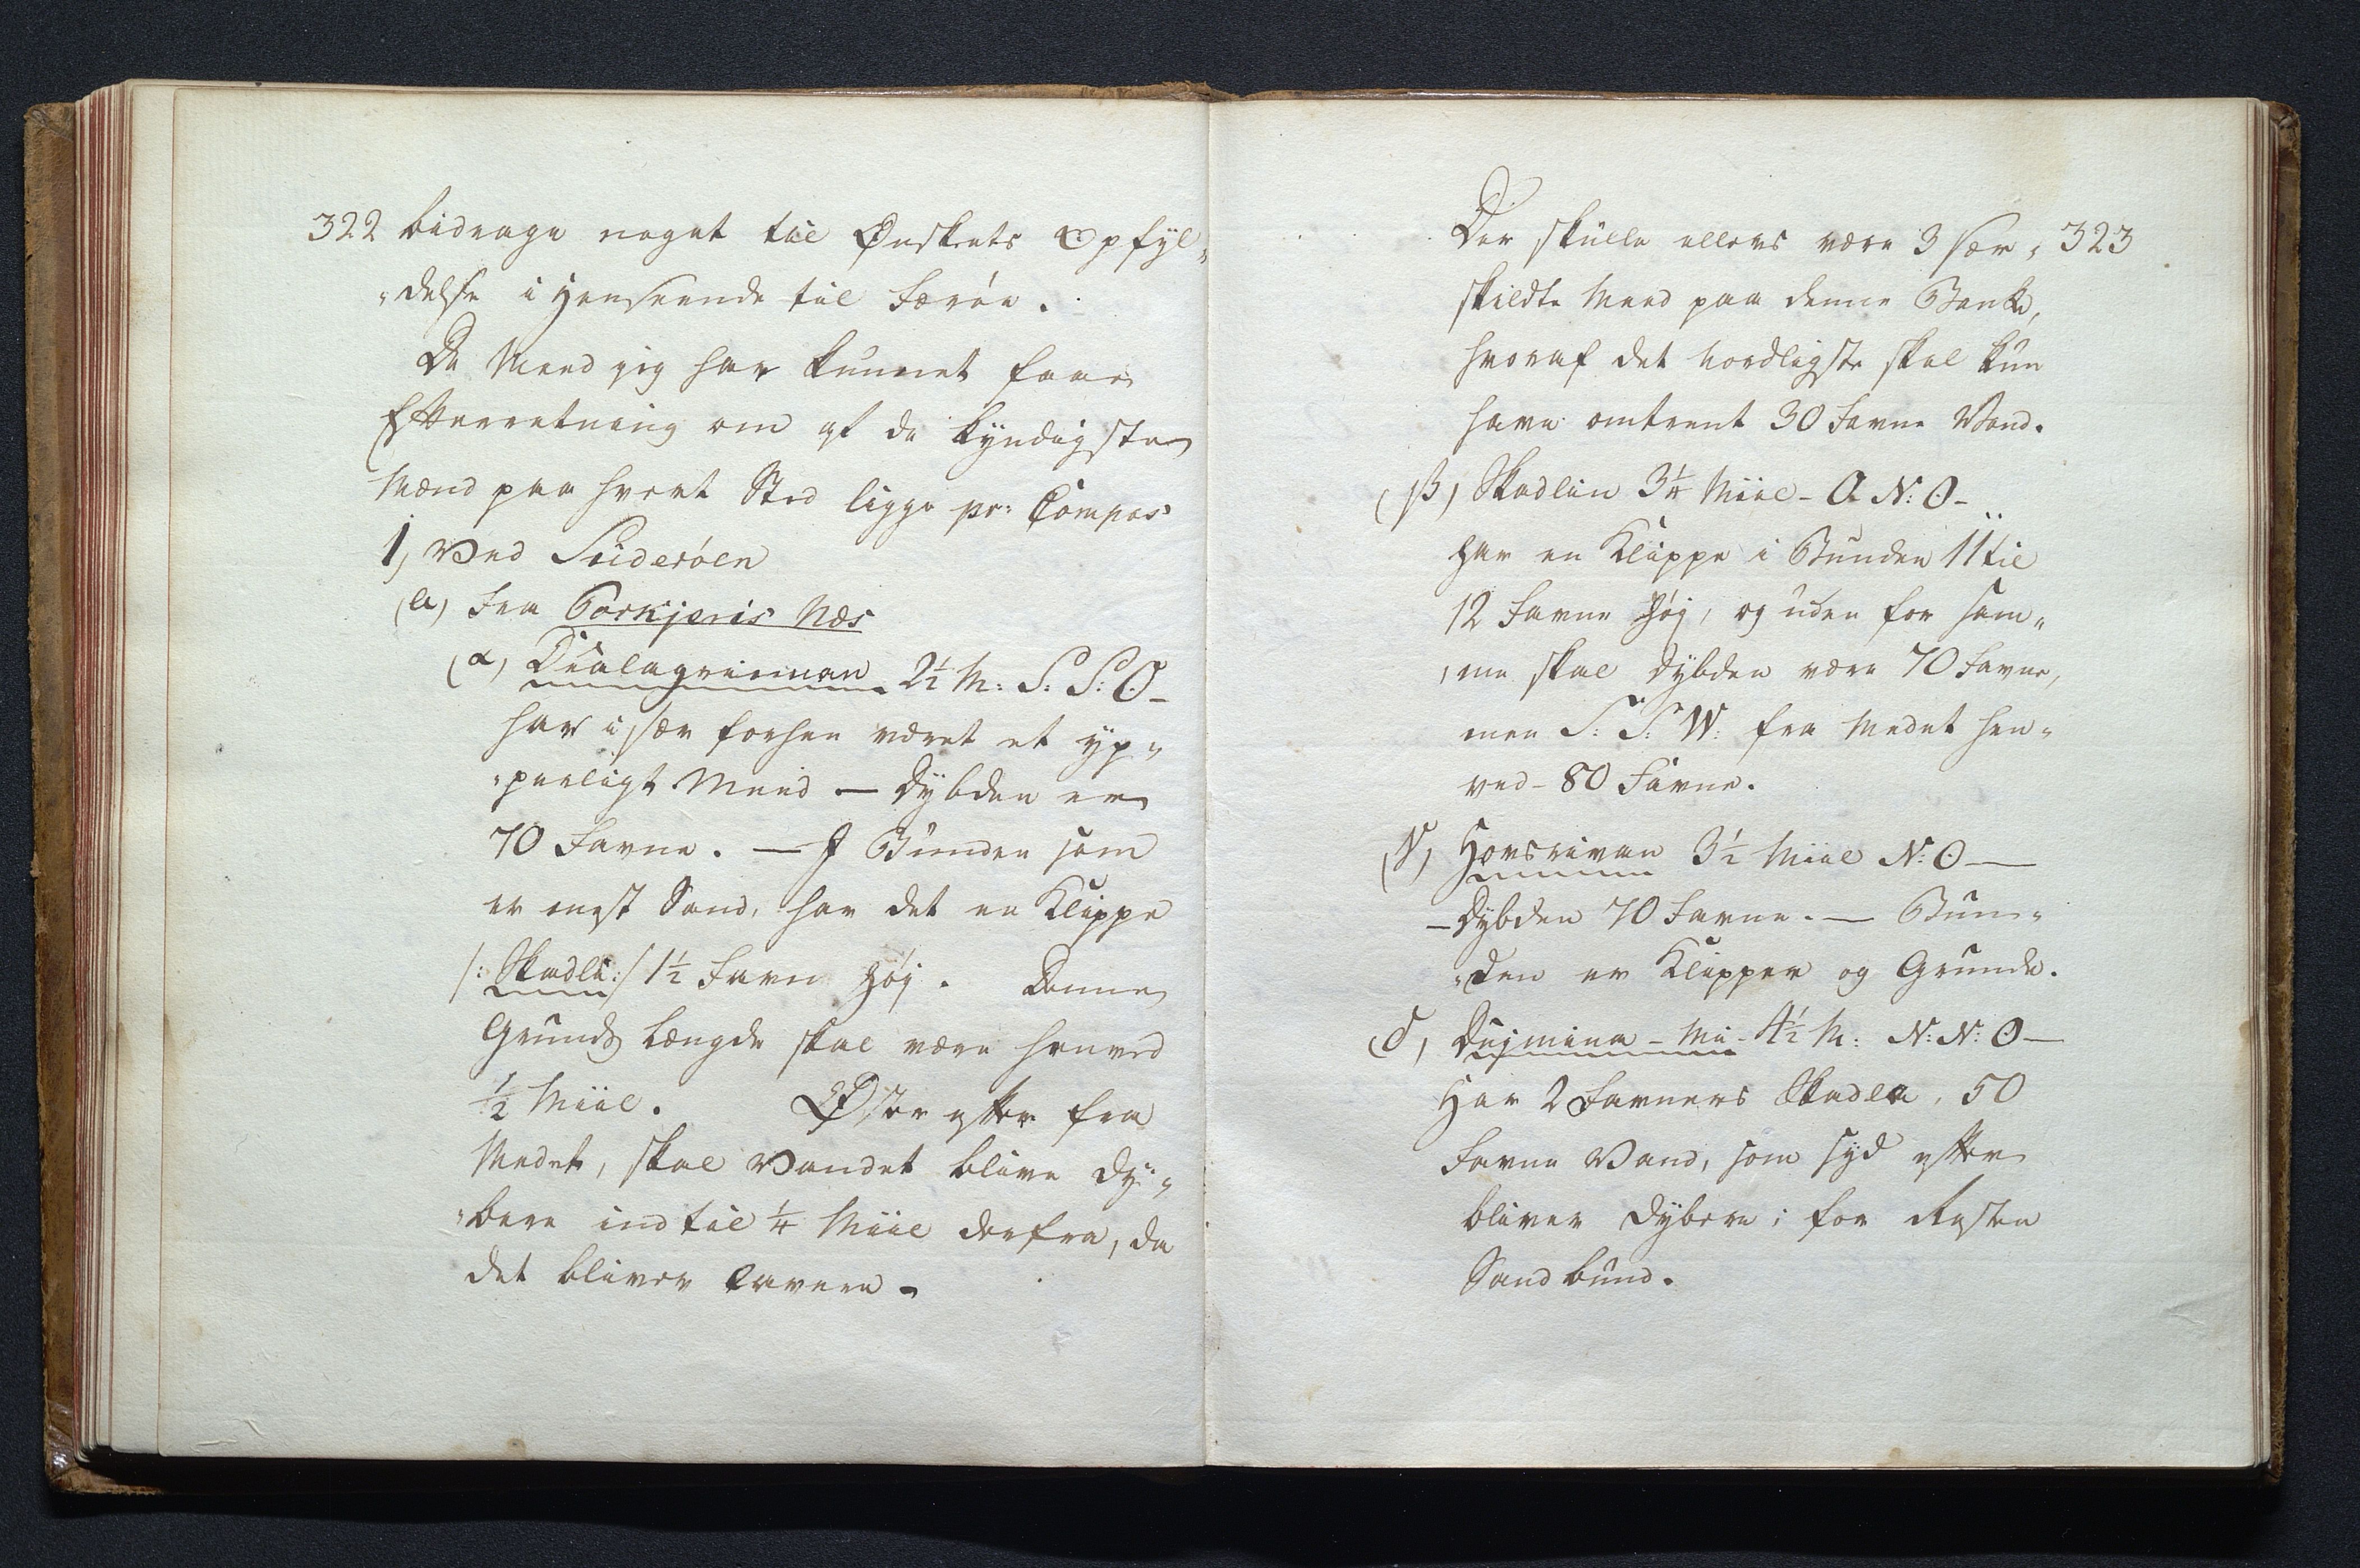 322 bidrage noget til Ønskets Opfyl„
„delse i Henseende til Færøe.
De Meed jeg har kunnet faae
Efterretning om af de kyndigste
Mænd paa hvert Sted ligge pr: Compas
1, Ved Süderöen
(a) Fra Porkjeris Næs
(α) 2½ M: S: S: O –
har især forhen været et yp„
„perligt Meed — Dybden er
70 Favne. — I Bunden som
er mest Sand, har det en Klippe
/: Skadli :/ 1½ Favn høj. Denne
Grunds Længde skal være henved
½ Miil. Øster efter fra
Medet, skal Vandet blive dy„
„bere indtil ¼ Miil derfra, da
det bliver lavere.
Der skulle ellers være 3 sær„ 323
skildte Meed paa denne Banke,
hvoraf det Nordligste skal kun
have omtrent 30 Favne Vand.
(β) Skadlin 3¼ Miil – O. N: O –
har en Klippe i Bunden 11 til
12 Favne høj, og uden for sam„
„me skal Dybden være 70 Favne,
men S: S: W: fra Medet hen„
ved – 80 Favne.
(γ) Hovsrivan 3½ Miil N: O —
– Dybden 70 Favne. — Bun„
„den er Klipper og Grunde.
(δ) Dujmina – Mi – 4½ M: N: N: O —
Har 2 Favners Skadla, 50
Favne Vand, som Syd efter
bliver dybere; for Resten
Sandbund.